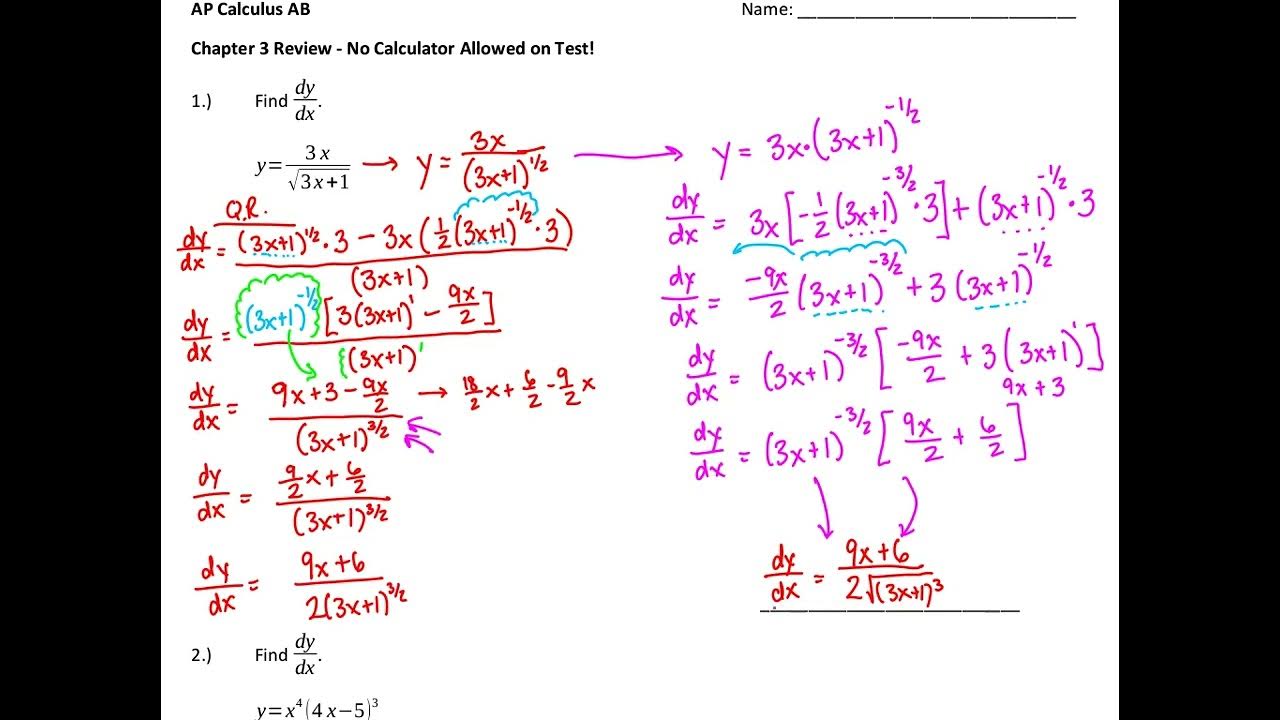 AP Calculus AB Name: ______________________________
Chapter 3 Review - No Calculator Allowed on Test!
1.) Find dy/dx.
y = 3x/√(3x+1) → y = 3x/(3x+1)^(1/2) → y = 3x·(3x+1)^(-1/2)
Q.R.
dy/dx = [(3x+1)^(1/2)·3 − 3x(1/2(3x+1)^(-1/2)·3)]/(3x+1)
dy/dx = (3x+1)^(-1/2)[3(3x+1)^1 − 9x/2]/(3x+1)^1
dy/dx = (9x+3−9x/2)/(3x+1)^(3/2) → 18/2x + 6/2 − 9/2x
dy/dx = (9/2x + 6/2)/(3x+1)^(3/2)
dy/dx = (9x+6)/(2(3x+1)^(3/2))
dy/dx = 3x[−1/2(3x+1)^(-3/2)·3] + (3x+1)^(-1/2)·3
dy/dx = −9x/2(3x+1)^(-3/2) + 3(3x+1)^(-1/2)
dy/dx = (3x+1)^(-3/2)[−9x/2 + 3(3x+1)^1]
9x+3
dy/dx = (3x+1)^(-3/2)[9x/2 + 6/2]
dy/dx = (9x+6)/(2√(3x+1)^3)
2.) Find dy/dx.
y = x^4(4x−5)^3